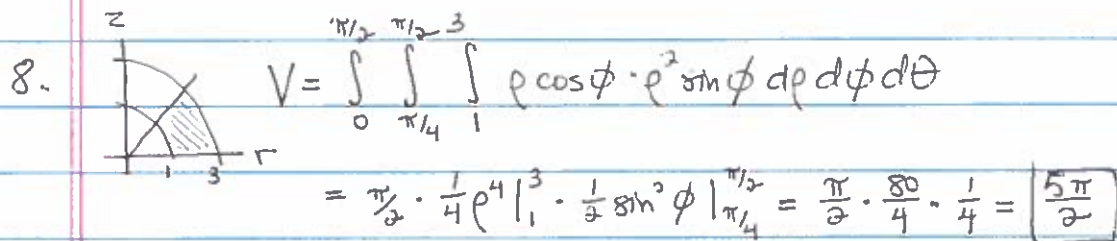 z
8. V = ∫₀^{π/2} ∫_{π/4}^{π/2} ∫₁³ ρ cos φ · ρ² sin φ dρ dφ dθ
1 3 r
= π/2 · 1/4 ρ⁴ |₁³ · 1/2 sin² φ |_{π/4}^{π/2} = π/2 · 80/4 · 1/4 = 5π/2